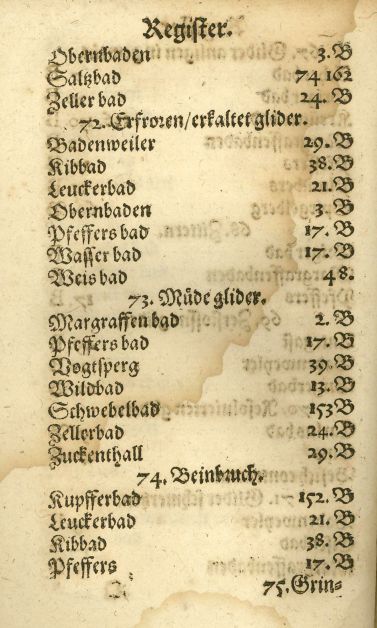 Register.
Obernbaden 3. B
Saltzbad 74 162
Zeller bad 24. B
72. Erfroren/erkaltet glider.
Badenweiler 29. B
Kibbad 38. B
Leuckerbad 21. B
Obernbaden 3. B
Pfeffers bad 17. B
Wasser bad 17. B
Weis bad 48.
73. Müde glider.
Margraffen bad 2. B
Pfeffers bad 17. B
Vogtsperg 39. B
Wildbad 13. B
Schwebelbad 153 B
Zellerbad 24. B
Zuckenthall 29. B
74. Beinbruch.
Kupfferbad 152. B
Leuckerbad 21. B
Kibbad 38. B
Pfeffers 17. B
75. Grin-